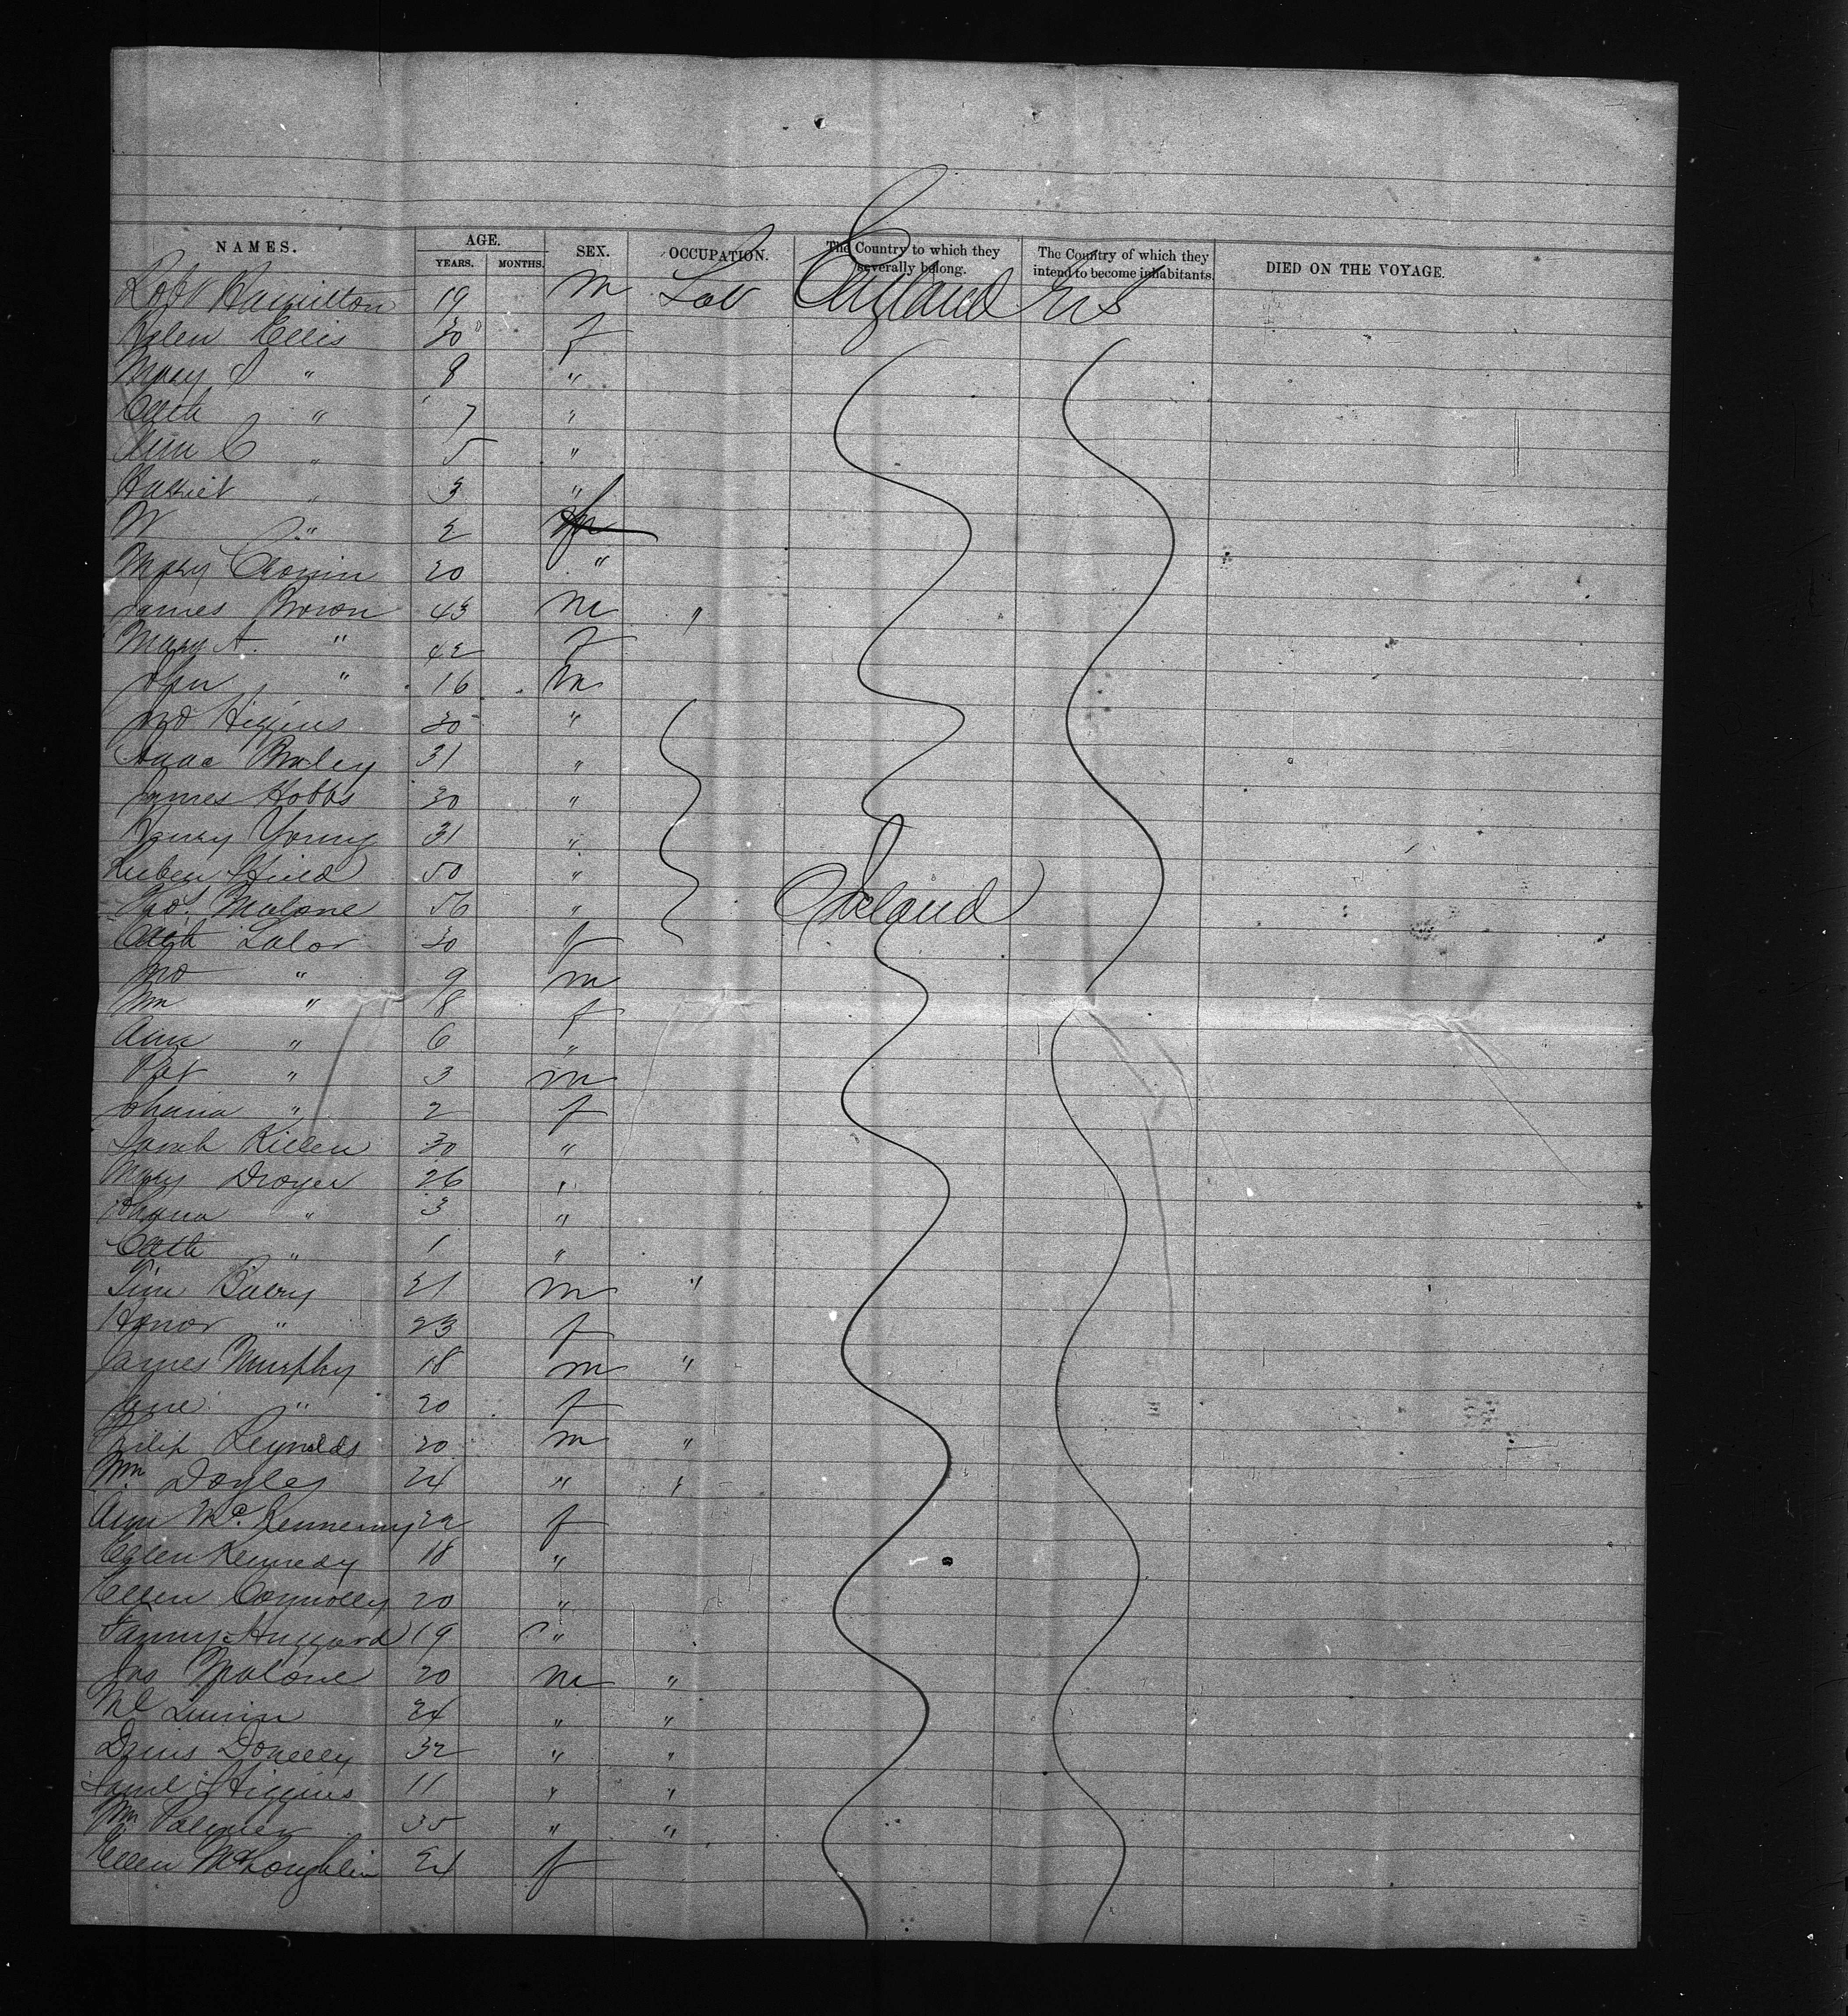 NAMES. AGE. YEARS. MONTHS. SEX. OCCUPATION. The Country to which they severally belong. The Country of which they intend to become inhabitants. DIED ON THE VOYAGE.
Robt Hamilton 19 m Lab England U S
Ellis 30 f
Mary " 8 "
Cath " 7 "
Ann C " 5 "
Harriet " 3 "
W " 2
Mary Cronin 20 "
James Brown 43 m "
Mary A. " 42 f
John " 16 m
Jno Higgins 30 "
Isaac 31 "
James Hobbs 30 "
Henry Young 31 "
Reuben 50 "
Malone 56 " Ireland
Cath Lalor 30 f
Jno " 9 m
" 8 f
Ann " 6 "
Pat " 3 m
Johana " 2 f
Sarah Killen 30 "
Mary Dwyer 26 "
Johana " 3 "
Cath " 1 "
Tim Barry 21 m "
Honor " 23 f
James Murphy 18 m "
Jane " 20 f
Philip Reynolds 20 m "
Wm Doyle 24 " "
Ann 22 f
Ellen Kennedy 18 "
Ellen Connolly 20 "
Fanny Huggard 19 "
Jno Malone 20 m "
24 " "
Denis Donelly 32 " "
Saml Higgins 11 " "
Wm Palmer 35 " "
Ellen McLoughlin 24 f